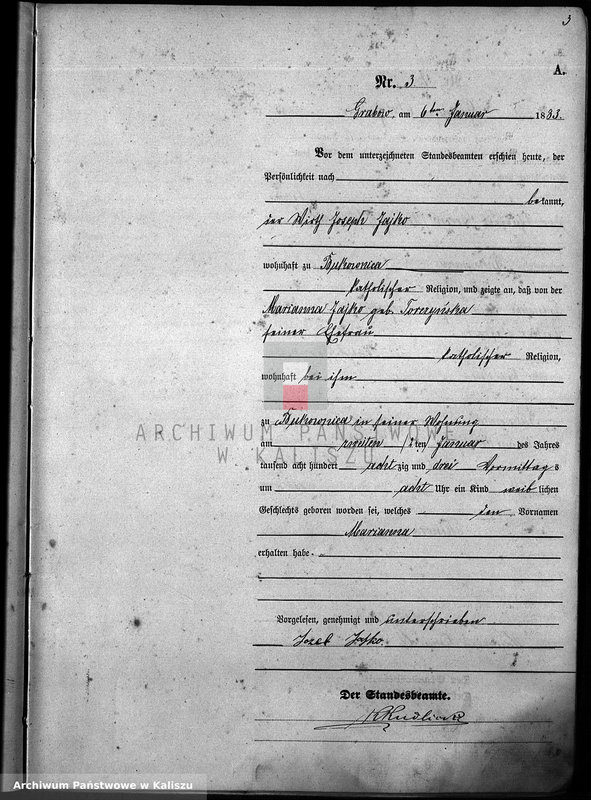 3
A.
Nr. 3
Grabow am 6ten Januar 1883.
Vor dem unterzeichneten Standesbeamten erschien heute, der
Persönlichkeit nach
bekannt,
der Wirth Joseph Jajko
wohnhaft zu Bukownica
katholischer Religion, und zeigte an, daß von der
Marianna Jajko geb. Torczyńska
seiner Ehefrau
katholischer Religion,
wohnhaft bei ihm
zu Bukownica in seiner Wohnung
am zweiten (2ten) Januar des Jahres
tausend acht hundert acht zig und drei Vormittags
um acht Uhr ein Kind weib lichen
Geschlechts geboren worden sei, welches den Vornamen
Marianna
erhalten habe.
Vorgelesen, genehmigt und unterschrieben
Jozef Jajko
Der Standesbeamte.
ARCHIWUM PAŃSTWOWE
W KALISZU
Archiwum Państwowe w Kaliszu